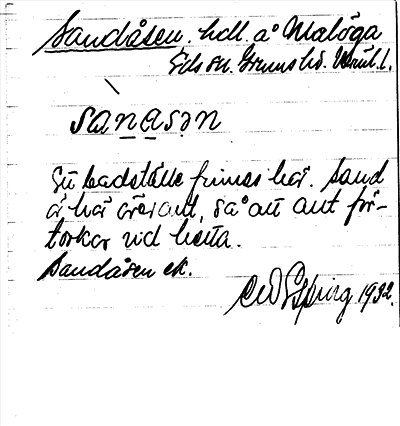 Sandåsen, hdl. å Malöga
Eds sn. Grums hd. Värml. l.
sanasən
Ett badställe finnes här. Sand
är här överallt, så att allt för-
torkar vid hetta.
Sandåsen ek.
1932.